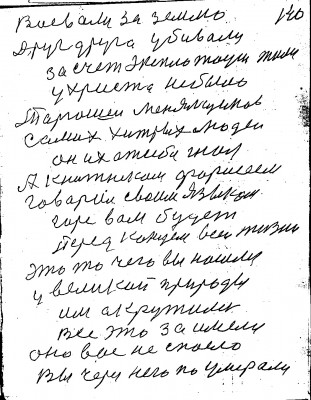 140
Воевали за землю
Друг друга убивали
за счет эксплотации жили
у христа не было
Торгошей менямщиков
самих хитрых людей
он их от себя гнал
А книжникам фарисеем
говарил своим языком
горе вам будет
перед концем всей жизни
это то чего вы нашли
у великой природы
им окружились
Все это за имели
оно вас не спосло
Вы через него по умерали